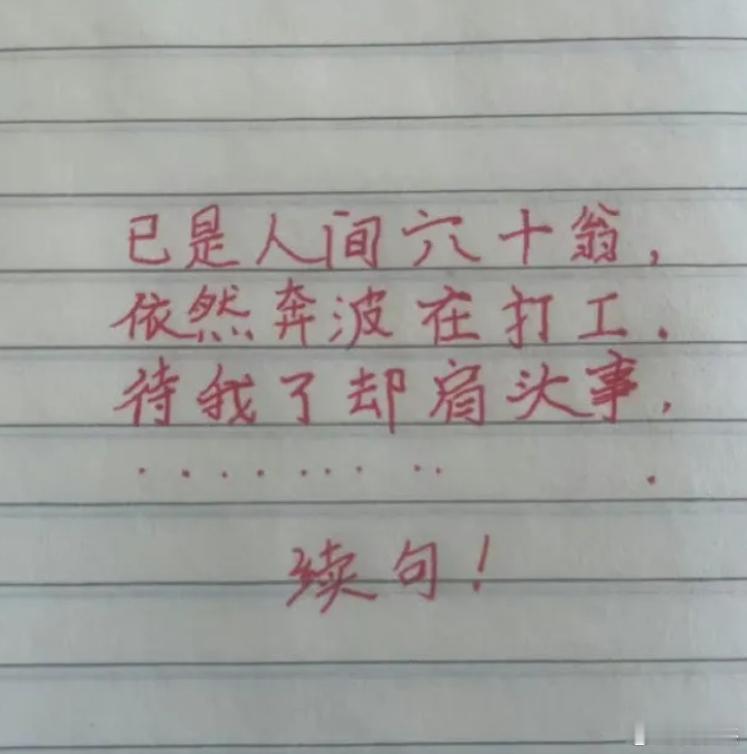 已是人间六十翁，
依然奔波在打工．
待我了却肩头事，
·········．
续句！